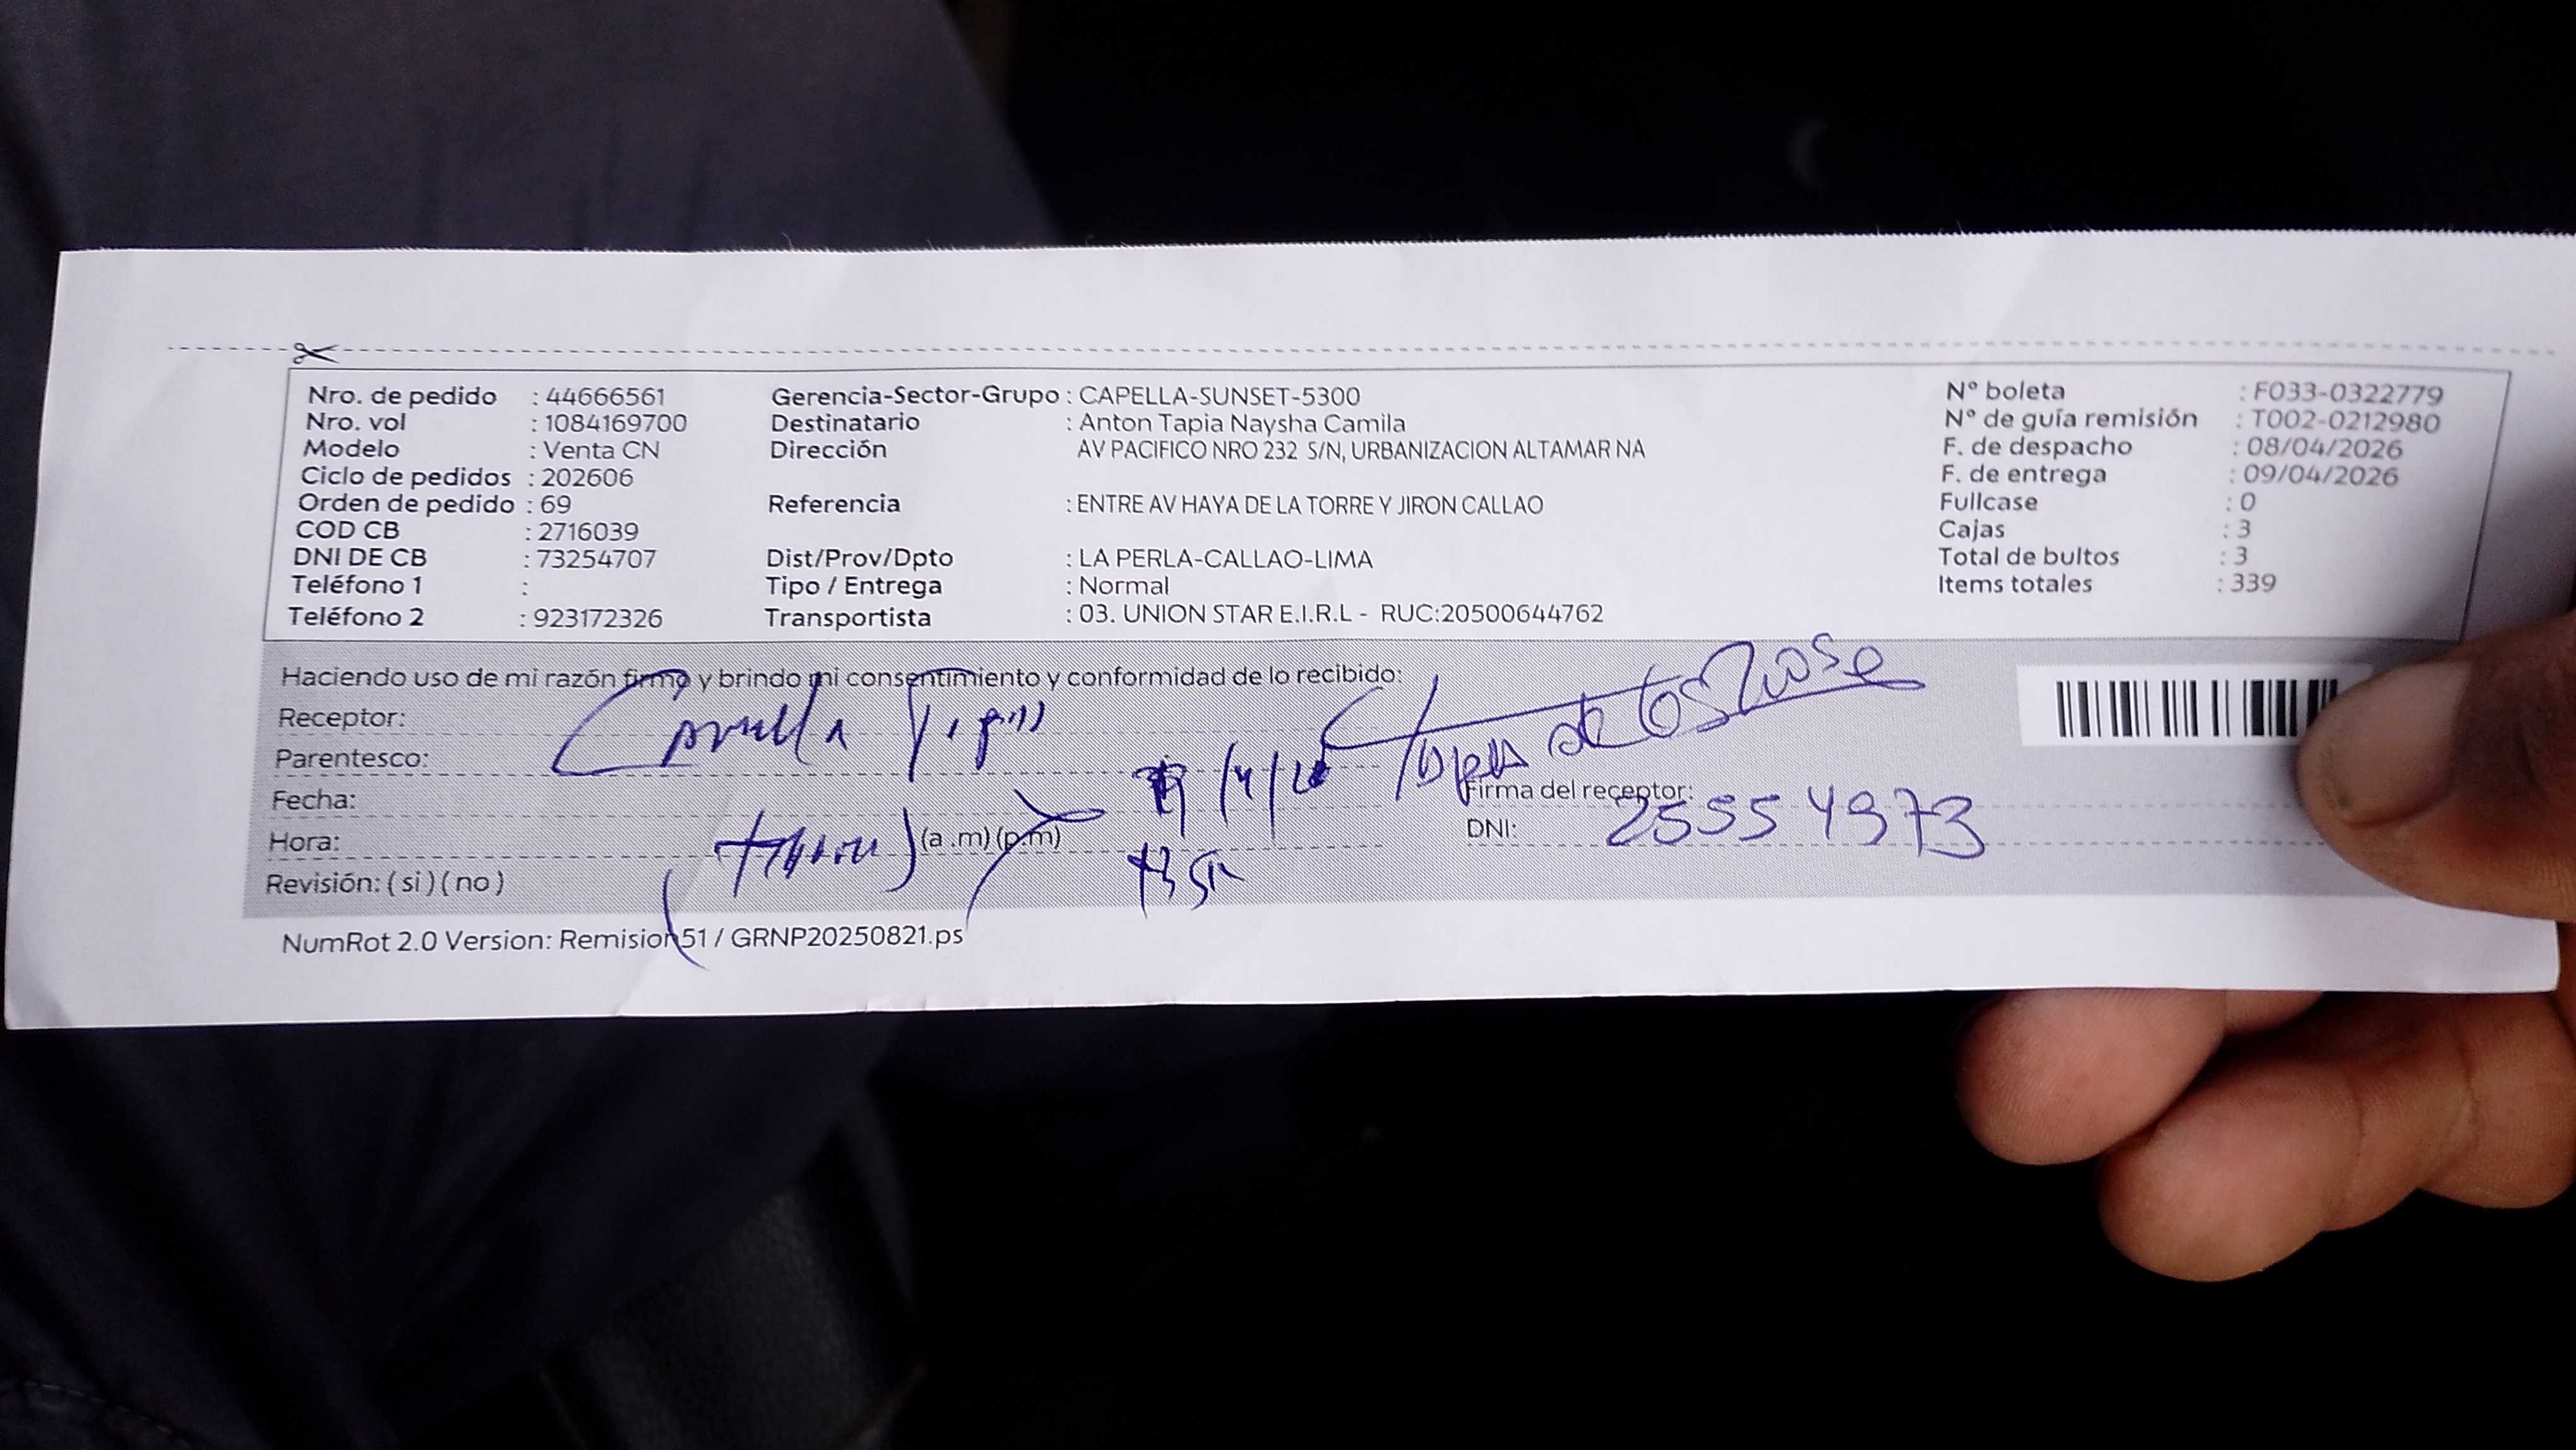 Nro. de pedido : 44666561 Gerencia-Sector-Grupo : CAPELLA-SUNSET-5300 Nº boleta : F033-0322779
Nro. vol : 1084169700 Destinatario : Anton Tapia Naysha Camila Nº de guía remisión : T002-0212980
Modelo : Venta CN Dirección AV PACIFICO NRO 232 S/N, URBANIZACION ALTAMAR NA F. de despacho : 08/04/2026
Ciclo de pedidos : 202606 F. de entrega : 09/04/2026
Orden de pedido : 69 Referencia : ENTRE AV HAYA DE LA TORRE Y JIRON CALLAO Fullcase : 0
COD CB : 2716039 Cajas : 3
DNI DE CB : 73254707 Dist/Prov/Dpto : LA PERLA-CALLAO-LIMA Total de bultos : 3
Teléfono 1 : Tipo / Entrega : Normal Items totales : 339
Teléfono 2 : 923172326 Transportista : 03. UNION STAR E.I.R.L - RUC:20500644762
Haciendo uso de mi razón firmo y brindo mi consentimiento y conformidad de lo recibido:
Receptor:
Parentesco:
Fecha: Firma del receptor:
Hora: (a .m) (p.m) DNI: 25554973
Revisión: ( si ) ( no )
NumRot 2.0 Version: Remision51 / GRNP20250821.ps